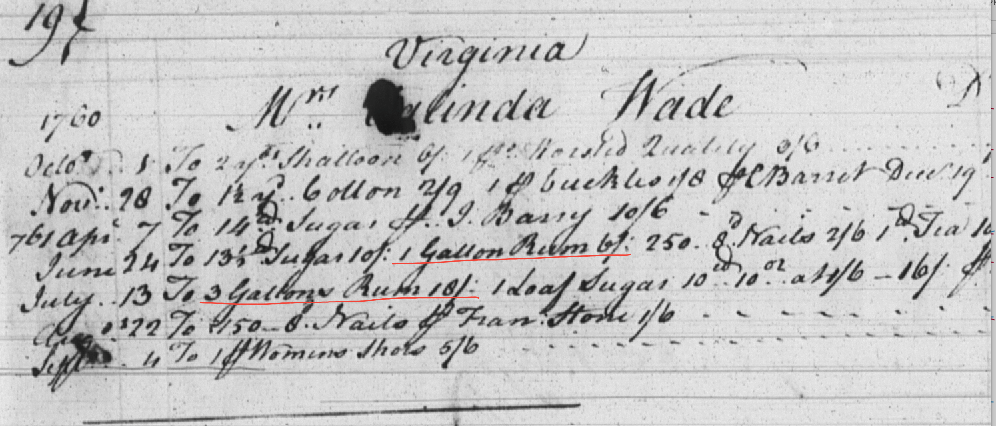 197
Virginia
Mrs. linda Wade
1760
Octor. 1 To 2 yds Shalloon 6/. 1 ps. Worsted Quality 3/6
Novr. 28 To 1½ yd. Cotton 2/9 1 pr buckles 1/8 pr C Barret Decr. 19
761 Apr. 7 To 14 lb Sugar pr J. Barry 10/6
June 24 To 13½ lb Sugar 10/. 1 Gallon Rum 6/. 250. 8d. Nails 2/6 1 lb. Tea 10
July. 13 To 3 Gallons Rum 18/. 1 Loaf Sugar 10 lb 10 oz. at 1/6 – 16/. pr
22 To 150– 8. Nails pr Fran. Stone 1/6
Sept 4 To 1 pr Womins Shoes 5/6